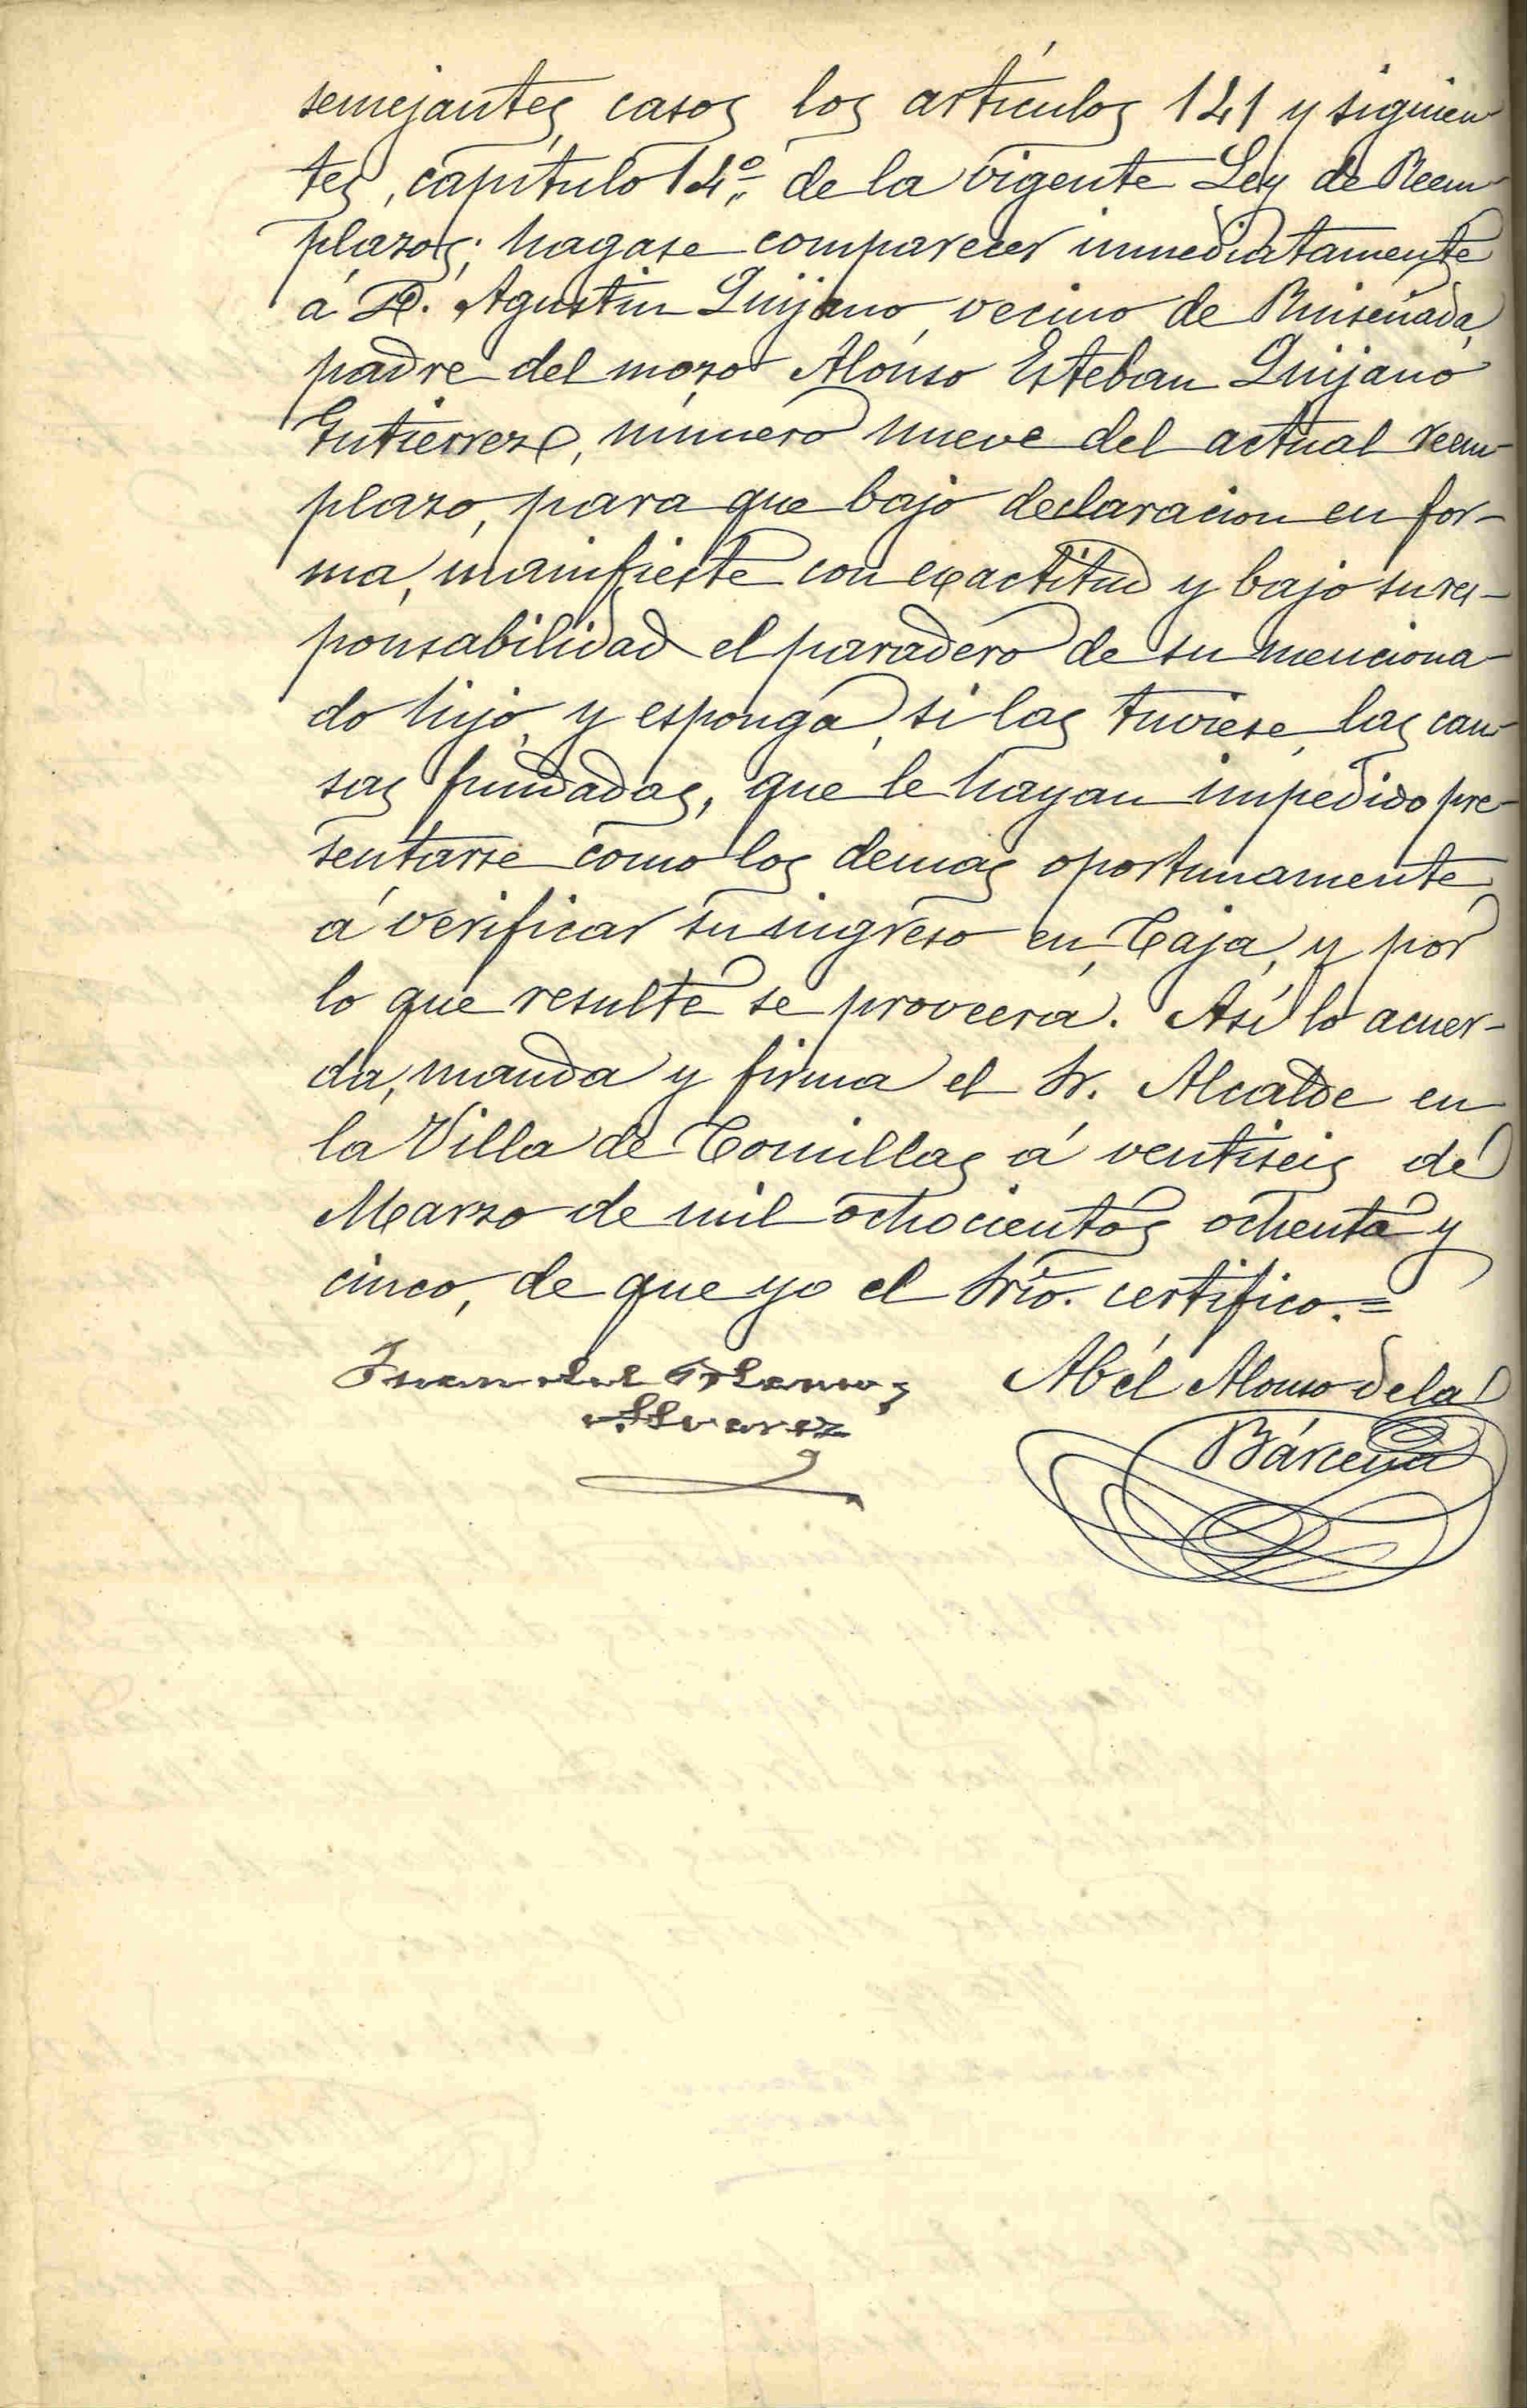 semejantes casos los artículos 141 y siguien
tes, capítulo 14º de la vigente Ley de Reem
plazos; hagase comparecer inmediatamente
á D. Agustin Quijano, vecino de Ruiseñada,
padre del mozo Alonso Esteban Quijano
Gutierrez, número nueve del actual reem
plazo, para que bajo declaracion en for-
ma, manifieste con exactitud y bajo su res-
ponsabilidad el paradero de su menciona-
do hijo, y esponga, si las tuviese, las cau-
sas fundadas, que le hayan impedido pre-
sentarse como los demas oportunamente
á verificar su ingreso en Caja, y por
lo que resulte se proveerá. Así lo acuer-
da, manda y firma el Sr. Alcalde en
la Villa de Comillas á ventiseis de
Marzo de mil ochocientos ochenta y
cinco, de que yo el Srio. certifico.=
Juan del Abel Alonso de la
Alvarez Bárcena